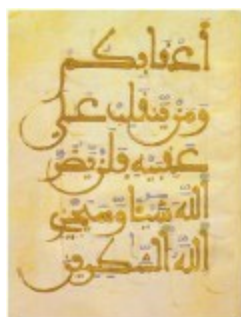 أَعْقَابِكُمْ
وَمَنْ يَنقَلِبْ عَلَى
عَقِبَيْهِ فَلَنْ يَضُرَّ
اللَّهَ شَيْئًا وَسَيَجْزِي
اللَّهُ الشَّاكِرِينَ